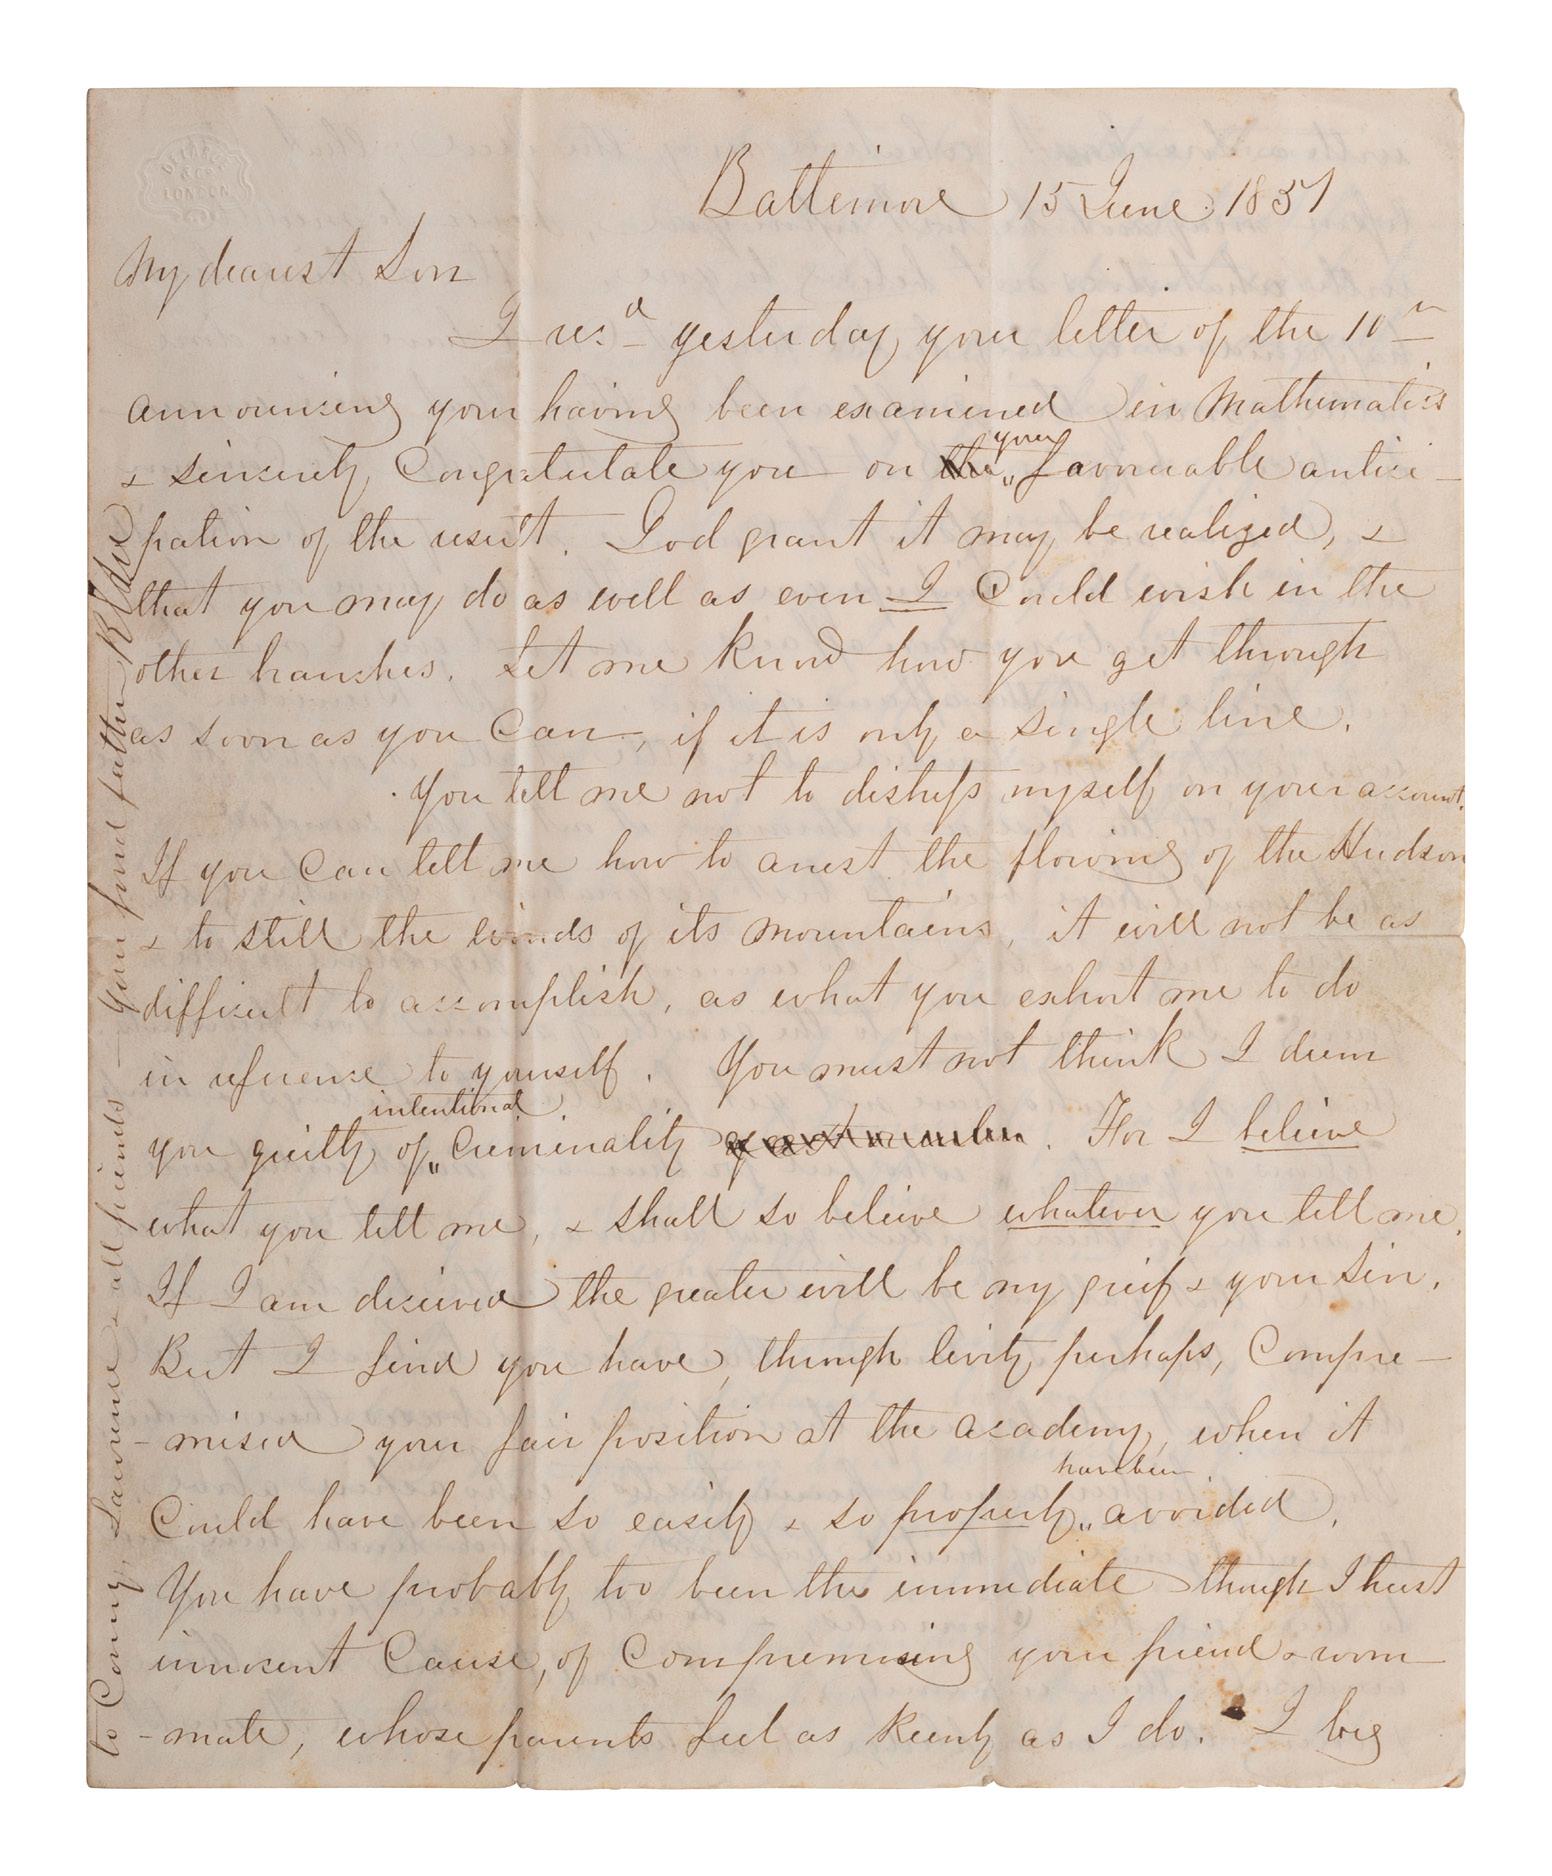 DE LA RUE
& Co
LONDON
Baltimore 15 June 1851
My dearest Son
I recd yesterday your letter of the 10th
announcing your having been examined in Mathematics
& sincerely Congratulate you on the your favourable antici-
pation of the result. God grant it may be realized, &
that you may do as well as even I Could wish in the
other branches. Let me know how you get through
as soon as you Can, if it is only a single line.
You tell me not to distress myself on your account.
If you Can tell me how to arrest the flowing of the Hudson
& to still the winds of its mountains, it will not be as
difficult to accomplish, as what you exhort me to do
in reference to yourself. You must not think I deem
you guilty of intentional Criminality. For I believe
what you tell me, & shall so believe whatever you tell me.
If I am deceived the greater will be my grief & your Sin.
But I find you have, through levity perhaps, Compro-
-mised your fair position at the academy, when it
Could have been so easily & so properly have been avoided.
You have probably too been the immediate though I trust
innocent Cause, of Compromising your friend & room
-mate, whose parents feel as keenly as I do. I beg
to Comy Lawrence & all friends — Your fond father R E Lee